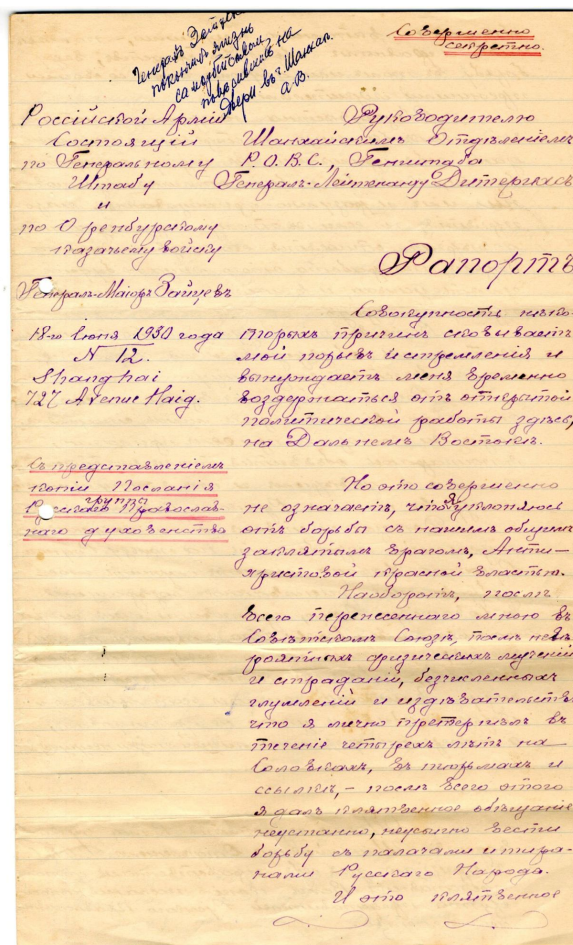 Совершенно
секретно.
Генералъ Зайцевъ
покончилъ жизнь
самоубійствомъ
повѣсившись на
двери въ г. Шанхаѣ.
А.В.
Россійской Арміи
Состоящій
по Генеральному
Штабу
и
по Оренбургскому
казачьему войску
Генералъ-Маіоръ Зайцевъ
18-го Іюня 1930 года
N 12.
Shanghai
727 Avenue Haig.
Съ представленіемъ
копіи Посланія
группы
Русскаго Православ-
наго духовенства
Руководителю
Шанхайскимъ Отдѣленіемъ
Р.О.В.С., Генштаба
Генералъ-Лейтенанту Дитерихсъ
Рапортъ
Совокупность нѣко-
торыхъ причинъ сковываетъ
мой порывъ и стремленія и
вынуждаетъ меня временно
воздержаться отъ открытой
политической работы здѣсь,
на Дальнемъ Востокѣ.
Но это совершенно
не означаетъ, что я уклоняюсь
отъ борьбы съ нашимъ общимъ
заклятымъ врагомъ, Анти-
христовой красной властью.
Наоборотъ, послѣ
всего перенесеннаго мною въ
Совѣтскомъ Союзѣ, послѣ невѣ-
роятныхъ физическихъ мученій
и страданій, безчисленныхъ
глумленій и издѣвательствъ,
что я лично претерпѣлъ въ
теченіе четырехъ лѣтъ на
Соловкахъ, въ тюрьмахъ и
ссылкѣ, - послѣ всего этого
я далъ клятвенное обѣщаніе
неустанно, неусыпно вести
борьбу съ палачами и тира-
нами Русскаго Народа.
И это клятвенное